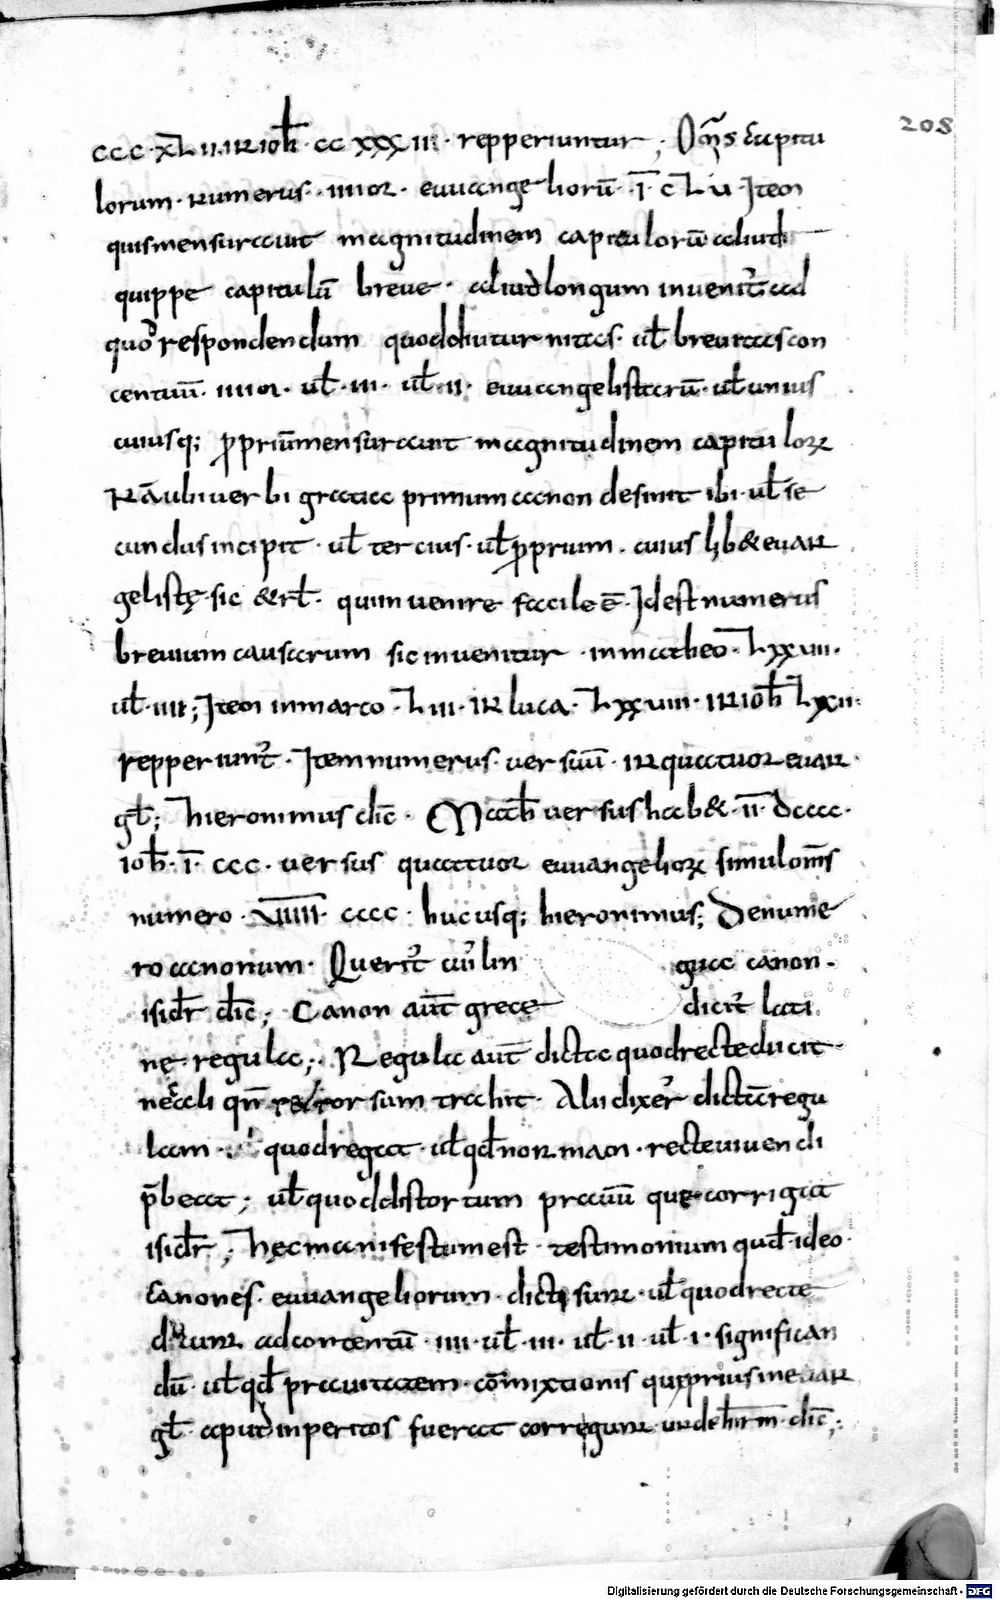 208
ccc·xl·ii·in ioh̄·cc xxx ii· repperiuntur; Om̄s capitu
lorum·numerus·iiiior·euuangeliorū·ī·clu·Item
quis mensurauit magnitudinem capitulorū aliud
quippe capitulū breue· aliud longum inuenit᷑ ad
quod respondendum quod diuturnitas·uł breuitas con
centuū·iiiior·uł·iii·uł·ii·euuangelistarū·uł unius
cuiusq; ꝓpriū mensurauit magnitudinem capituloꝝ
Nā ubi uerbi gratia primum canon desinit ibi·uł se
cundus incipit·uł tercius·uł ꝓprium·cuius lib& euan
gelistę·sic &rł·qui inuenire facile ē·Id est numerus
breuium causarum sic inuenitur·in matheo·lxxuiii·
uł·iiii; Item in marco·l iii·in luca·lxxuiii·in ioh̄ lxii·
repperiunt᷑·Item numerus·uersuū·in quatuor euan
gł; hieronimus dic̄·Math̄ uersus hab&·ii·dccc·
ioh̄·ī·ccc·uersus quattuor euuangelioꝝ simul om̄s
numero·uiiii·cccc·hucusq; hieronimus; De nume
ro canonum·Querit᷑ cui᷑ lin gua canon·
isidr̄ dic̄; Canon aut̄ grece dicit᷑ lati
ne·regula; Regula aut̄ dicta quod recte ducit
nec ali qn̄ rsum trahit·Alii dixer᷑ dictā regu
lam quod regat·uł qđ normam·recte uiuendi
p̄beat; uł quod distortum prauū que corrigat
isidr̄; hęc manifestum est·testimonium quđ·ideo·
canones·euuangeliorum·dicti sunt·uł quod recte
dicunt ad contentū·iiii·uł·iii·uł·ii·uł·i·significan
dū·uł qđ prauitatem·cōmixtionis que prius in euan
gł·aput inperitos fuerat corregunt unde hirm̄·dic̄;
Digitalisierung gefördert durch die Deutsche Forschungsgemeinschaft - DFG